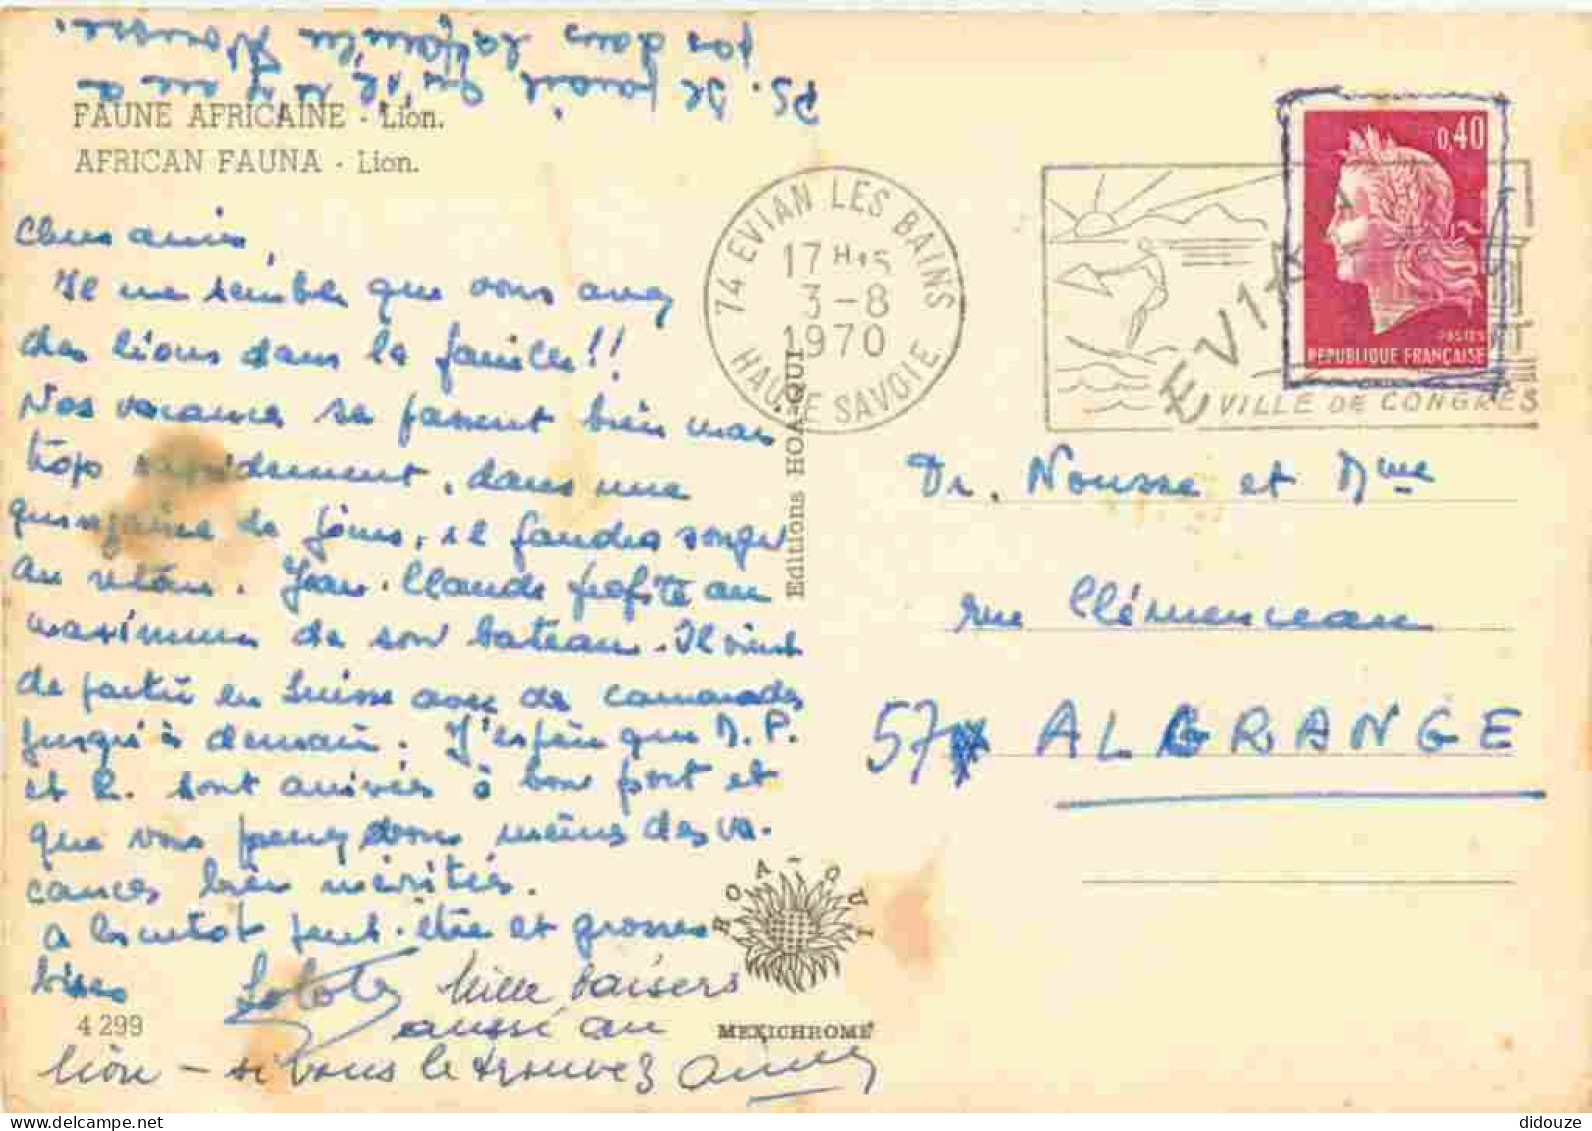 PS. Il parait qu'il n'y en a
pas dans la famille Nousse.
FAUNE AFRICAINE - Lion.
AFRICAN FAUNA - Lion.
Chers amis,
Il me semble que vous avez
des lions dans la famille!!
Nos vacances se passent bien mais
trop rapidement, dans une
quinzaine de jours, il faudra songer
au retour. Jean-Claude profite au
maximum de son bateau. Il vient
de partir en Suisse avec des camarades
jusqu'à demain. J'espère que D. P.
et R. sont arrivés à bon port et
que vous prenez vous mêmes des va-
cances bien méritées.
A bientôt peut-être et grosses
bises Lolote Mille baisers
aussi au
lion - si vous le trouvez
4 299
74 EVIAN LES BAINS
17 H 15
3-8
1970
HAUTE SAVOIE
EVIAN
VILLE DE CONGRES
0,40
POSTES
REPUBLIQUE FRANÇAISE
Editions HOA-QUI
Dr. Nousse et Mme
rue Clémenceau
57 ALGRANGE
HOA-QUI
MEXICHROME
delcampe.net
didouze